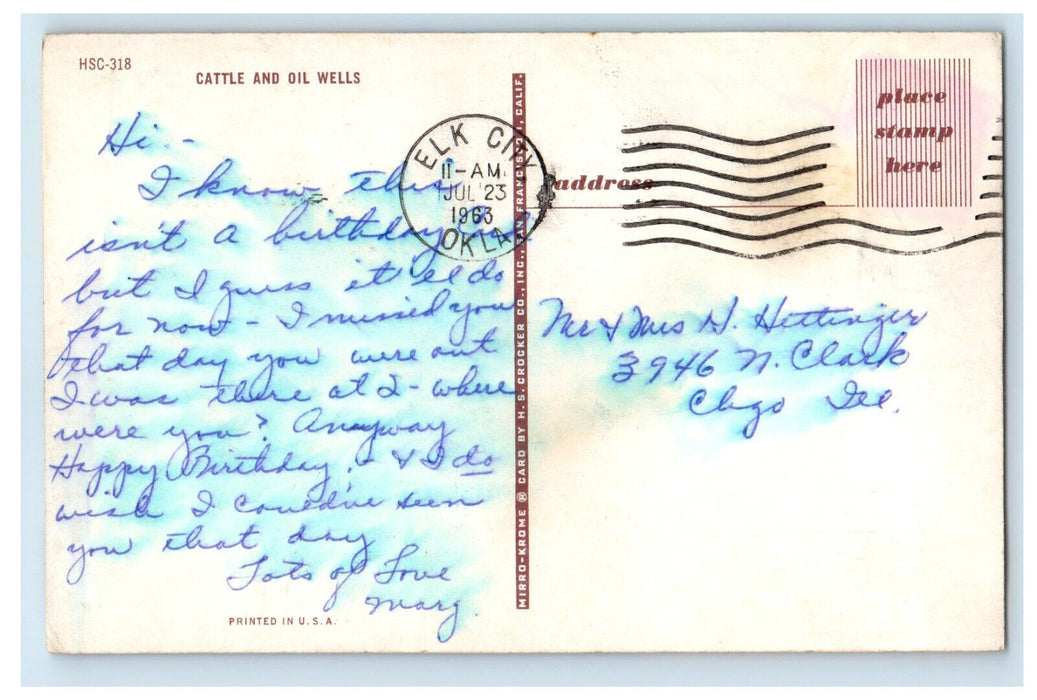 HSC-318
CATTLE AND OIL WELLS
Hi -
I know this
isn't a birthday
but I guess it'll do
for now - I missed you
that day you were out
I was there at 2 - where
were you? Anyway
Happy Birthday! - & I do
wish I could've seen
you that day
Lots of Love
Marg.
PRINTED IN U.S.A.
MIRRO-KROME ® CARD BY H. S. CROCKER CO., INC., SAN FRANCISCO, CALIF.
ELK CITY
11-AM
JUL 23
1963
OKLA
place
stamp
here
address
Mr & Mrs H. Hettinger
3946 N. Clark
Chgo Ill.